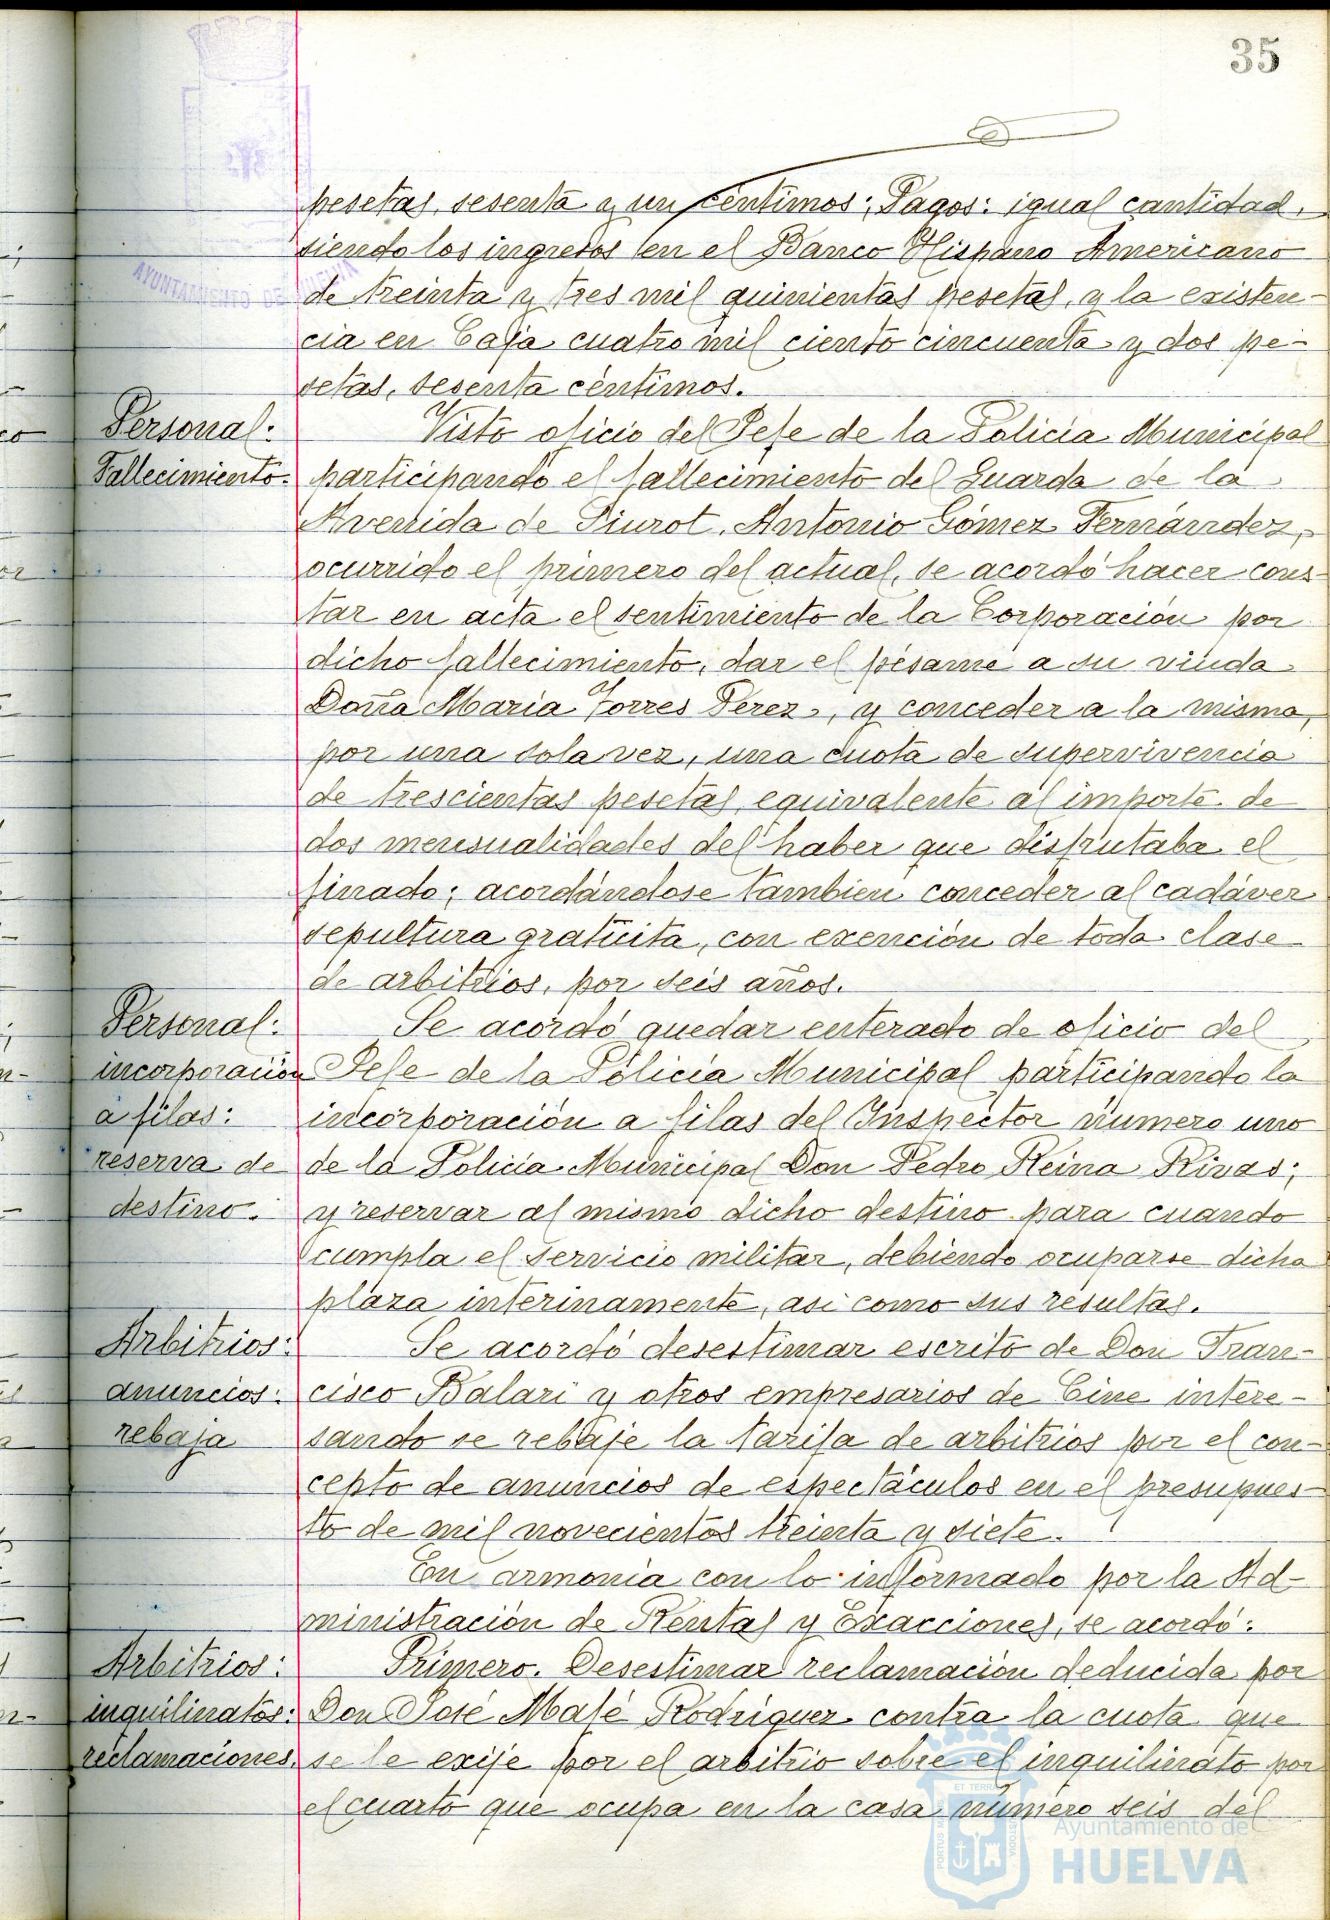 35
pesetas, sesenta y un céntimos; Pagos: igual cantidad,
siendo los ingresos en el Banco Hispano Americano
AYUNTAMIENTO DE HUELVA
de treinta y tres mil quinientas pesetas, y la existen-
cia en Caja cuatro mil ciento cincuenta y dos pe-
setas, sesenta céntimos.
Personal:
Fallecimiento.
Visto oficio del Jefe de la Policía Municipal
participando el fallecimiento del Guarda de la
Avenida de Siurot, Antonio Gómez Fernández,
ocurrido el primero del actual, se acordó hacer cons-
tar en acta el sentimiento de la Corporación por
dicho fallecimiento, dar el pésame a su viuda
Doña María Torres Perez, y conceder a la misma,
por una sola vez, una cuota de supervivencia
de trescientas pesetas, equivalente al importe de
dos mensualidades del haber que disfrutaba el
finado; acordándose tambien conceder al cadáver
sepultura gratüita, con exención de toda clase
de arbitrios, por seis años.
Personal:
incorporación
a filas:
reserva de
destino.
Se acordó quedar enterado de oficio del
Jefe de la Policía Municipal participando la
incorporación a filas del Inspector número uno
de la Policía Municipal Don Pedro Reina Rivas;
y reservar al mismo dicho destino para cuando
cumpla el servicio militar, debiendo ocuparse dicha
plaza interinamente, asi como sus resultas.
Arbitrios:
anuncios:
rebaja
Se acordó desestimar escrito de Don Fran-
cisco Balari y otros empresarios de Cine intere-
sando se rebaje la tarifa de arbitrios por el con-
cepto de anuncios de espectáculos en el presupues-
to de mil novecientos treinta y siete.
En armonía con lo informado por la Ad-
ministración de Rentas y Exacciones, se acordó:
Arbitrios:
inquilinatos:
reclamaciones.
Primero. Desestimar reclamación deducida por
Don José Mafé Rodríguez contra la cuota que
se le exije por el arbitrio sobre el inquilinato por
el cuarto que ocupa en la casa número seis del
PORTUS MARIS ET TERRAE CUSTODIA
Ayuntamiento de
HUELVA